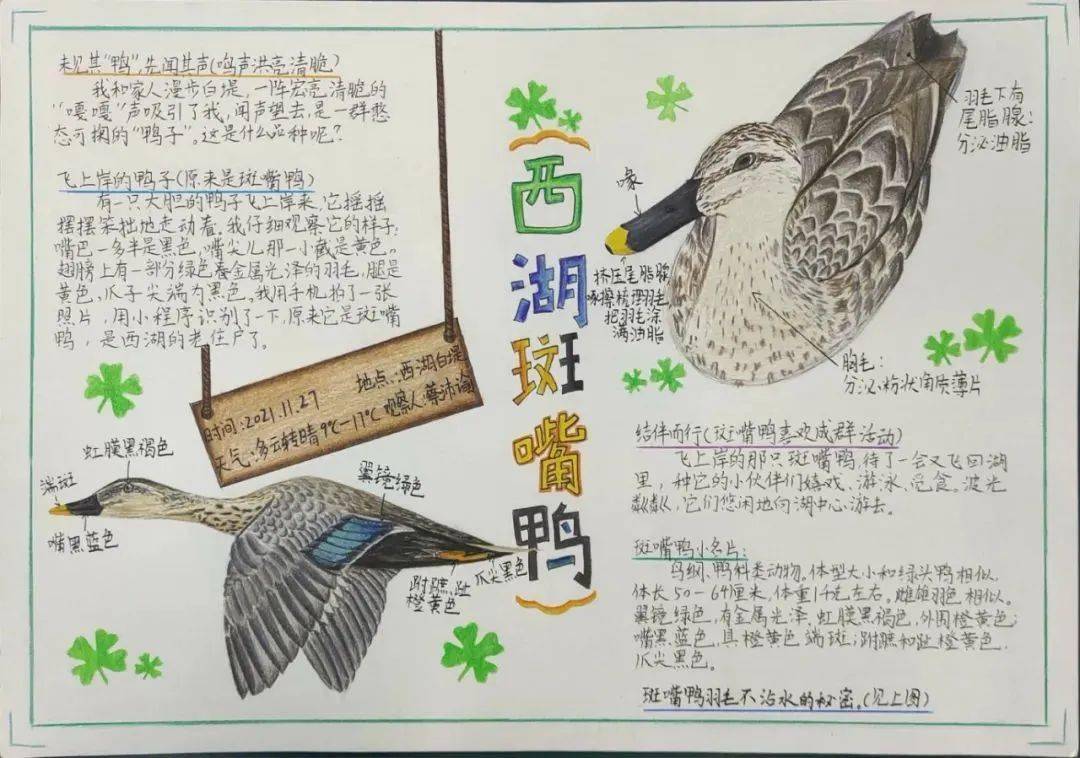 未见其“鸭”,先闻其声(鸣声洪亮清脆)
我和家人漫步白堤,一阵宏亮、清脆的
“嘎嘎”声吸引了我,闻声望去,是一群憨
态可掬的“鸭子”。这是什么品种呢?
飞上岸的鸭子(原来是斑嘴鸭)
有一只大胆的鸭子飞上岸来,它摇摇
摆摆笨拙地走动着。我仔细观察它的样子:
嘴巴一多半是黑色,嘴尖儿那一小截是黄色。
翅膀上有一部分绿色泰金属光泽的羽毛,腿是
黄色,爪子尖端为黑色。我用手机拍了一张
照片,用小程序识别了一下,原来它是斑嘴
鸭,是西湖的老住户了。
时间:2021.11.27
地点:西湖白堤
天气:多云转晴9℃-17℃
观察人:蔡沛渝
虹膜黑褐色
端斑
嘴黑蓝色
翼镜绿色
跗蹠、趾
橙黄色
爪尖黑色
(西湖斑嘴鸭)
喙
挤压尾脂腺
啄擦梳理羽毛
把羽毛涂
满油脂
羽毛下有
尾脂腺:
分泌油脂
胸毛:
分泌粉状角质薄片
结伴而行(斑嘴鸭喜欢成群活动)
飞上岸的那只斑嘴鸭,待了一会又飞回湖
里,和它的小伙伴们嬉戏、游泳、觅食。波光
粼粼,它们悠闲地向湖中心游去。
斑嘴鸭小名片:
鸟纲、鸭科类动物。体型大小和绿头鸭相似,
体长50-64厘米,体重1千克左右。雌雄羽色相似。
翼镜绿色,有金属光泽,虹膜黑褐色,外围橙黄色;
嘴黑蓝色,具橙黄色端斑;跗蹠和趾橙黄色,
爪尖黑色。
斑嘴鸭羽毛不沾水的秘密。(见上图)